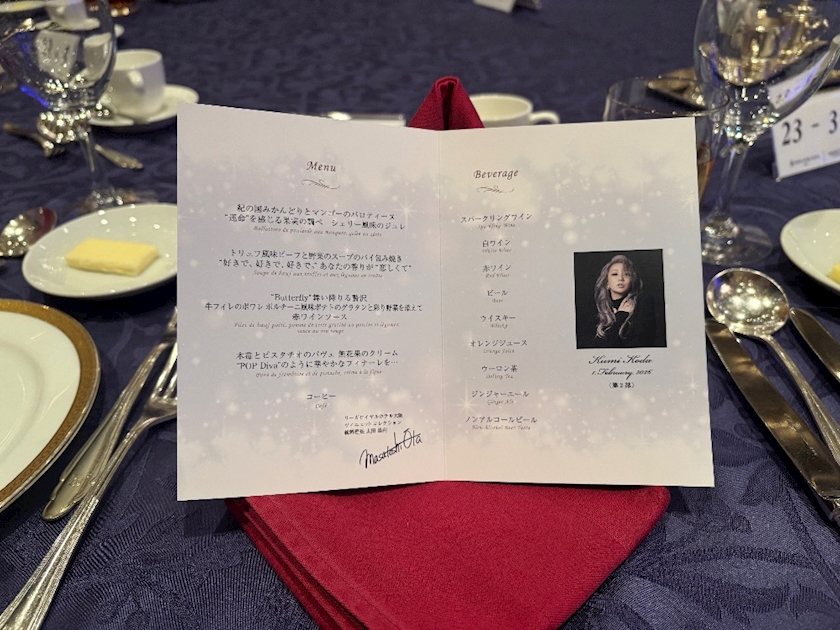 Menu
紀の国みかんどりとマンゴーのバロティーヌ
"運命"を感じる果実の調べ シェリー風味のジュレ
トリュフ風味ビーフと野菜のスープのパイ包み焼き
"好きで、好きで、好きで。"あなたの香りが"恋しくて"
"Butterfly"舞い降りる贅沢
牛フィレのポワレ ボルチーニ風味ポテトのグラタンと彩り野菜を添えて
赤ワインソース
木苺とピスタチオのパヴェ 無花果のクリーム
"POP Diva"のように華やかなフィナーレを…
コーヒー
Café
リーガロイヤルホテル大阪
ヴィニェット コレクション
総料理長 太田 昌利
Masatoshi Ota
Beverage
スパークリングワイン
Sparkling Wine
白ワイン
White Wine
赤ワイン
Red Wine
ビール
Beer
ウイスキー
Whisky
オレンジジュース
Orange Juice
ウーロン茶
Oolong Tea
ジンジャーエール
Ginger Ale
ノンアルコールビール
Kumi Koda
1.February.2026
(第2部)
23 - 3